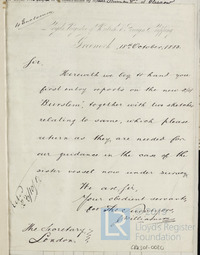 Lloyd's Register of British & Foreign Shipping
Greenock, 18th October, 1882
Sir,
Herewith we beg to hand you
first entry reports on the new S/S
together with two sketches
relating to same, which please
return as they are needed for
our guidance in the case of the
sister vessel now under survey.
We are, Sir,
Your obedient servants,
For The Surveyors
The Secretary,
London.
Lloyd's Register
Foundation